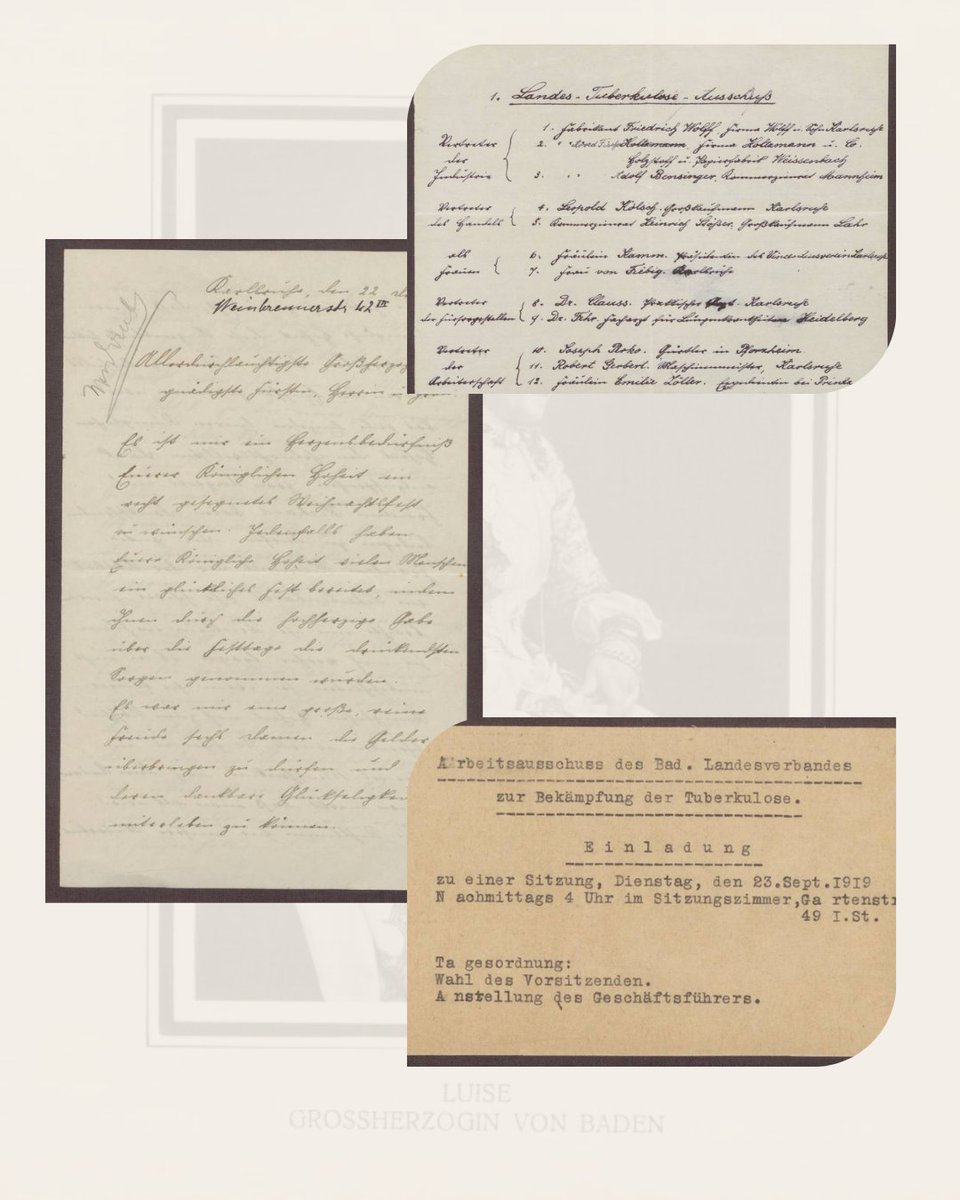 1. Landes-Tuberkulose-Ausschuß
Vertreter der Industrie
1. Fabrikant Friedrich Wolff, Firma Wolff u. Sohn Karlsruhe
2. " Holtzmann, Firma Holtzmann u. C.
Holzstoff u. Papierfabrik Weissenbach
3. " " Adolf Bensinger, Kommerzienrat Mannheim
Vertreter des Handels
4. Leopold Kölsch, Großkaufmann Karlsruhe
5. Kommerzienrat Heinrich Stößer, Großkaufmann Lahr
als Frauen
6. Fräulein Kamm, Präsidentin des
7. Frau von Karlsruhe
Vertreter der Fürsorgestellen
8. Dr. Clauss, praktischer Arzt Karlsruhe
9. Dr. Fehr, Facharzt für Heidelberg
Vertreter der Arbeiterschaft
10. Joseph Gürtler in Pforzheim
11. Robert Gerbert, Maschinenmeister, Karlsruhe
12. Fräulein Emilie Zöller, bei
Karlsruhe, den 22
Weinbrennerstr. 42 III
Allerdurchlauchtigste Großherzog
gnädigste Fürstin, Herrin u.
Es ist mir ein Herzensbedürfniß
Euerer Königlichen Hoheit ein
recht gesegnetes Weihnachtsfest
zu wünschen. Jedenfalls haben
Euere Königliche Hoheit vielen Menschen
ein glückliches Fest bereitet, indem
ihnen durch die hochherzige Gabe
über die Festtage die drückendsten
Sorgen genommen wurden.
Es war mir eine große, reine
Freude sechs Damen die Gelder
überbringen zu dürfen und
deren dankbare Glückseligkei
miterleben zu können.
Arbeitsausschuss des Bad. Landesverbandes
zur Bekämpfung der Tuberkulose.
Einladung
zu einer Sitzung, Dienstag, den 23.Sept.1919
N achmittags 4 Uhr im Sitzungszimmer,Ga rtenstr
49 I.St.
Ta gesordnung:
Wahl des Vorsitzenden.
A nstellung des Geschäftsführers.
LUISE
GROSSHERZOGIN VON BADEN